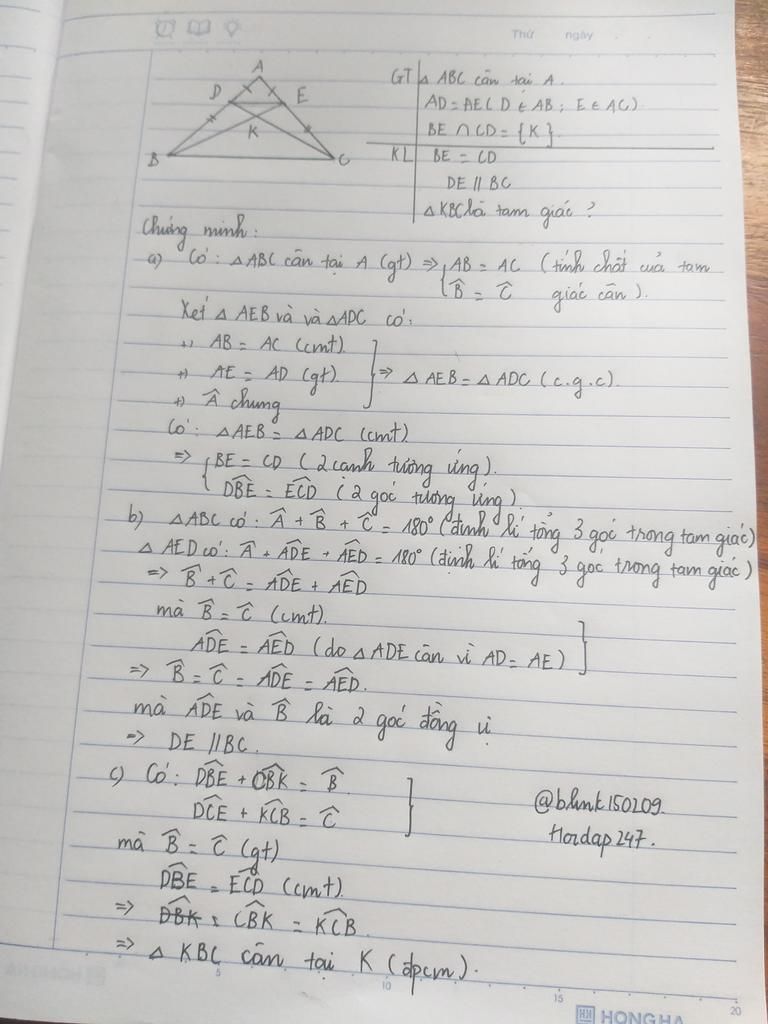 Thứ ngày
A
D
E
K
B
C
GT △ ABC cân tại A.
AD = AE ( D ∈ AB ; E ∈ AC)
BE ∩ CD = {K}
KL BE = CD
DE // BC
△ KBC là tam giác ?
Chứng minh :
a) Có : △ ABC cân tại A (gt) => { AB = AC (tính chất của tam
B̂ = Ĉ giác cân).
Xét △ AEB và và △ADC có :
+) AB = AC (cmt)
+) AE = AD (gt). } => △ AEB = △ ADC (c.g.c).
+) Â chung
Có : △ AEB = △ ADC (cmt)
=> { BE = CD ( 2 cạnh tương ứng).
DBE = ECD ( 2 góc tương ứng)
b) △ABC có : Â + B̂ + Ĉ = 180° (định lí tổng 3 góc trong tam giác)
△ AED có : Â + ADE + AED = 180° (định lí tổng 3 góc trong tam giác)
=> B̂ + Ĉ = ADE + AED
mà B̂ = Ĉ (cmt).
ADE = AED (do △ ADE cân vì AD = AE) }
=> B̂ = Ĉ = ADE = AED.
mà ADE và B̂ là 2 góc đồng vị
=> DE // BC.
c) Có : DBE + CBK = B̂
DCE + KCB = Ĉ }
@blink150209.
Hoidap247.
mà B̂ = Ĉ (gt)
DBE = ECD (cmt).
=> DBK : CBK = KCB.
=> △ KBC cân tại K (đpcm).
5
10
15
20
HH HONG HA